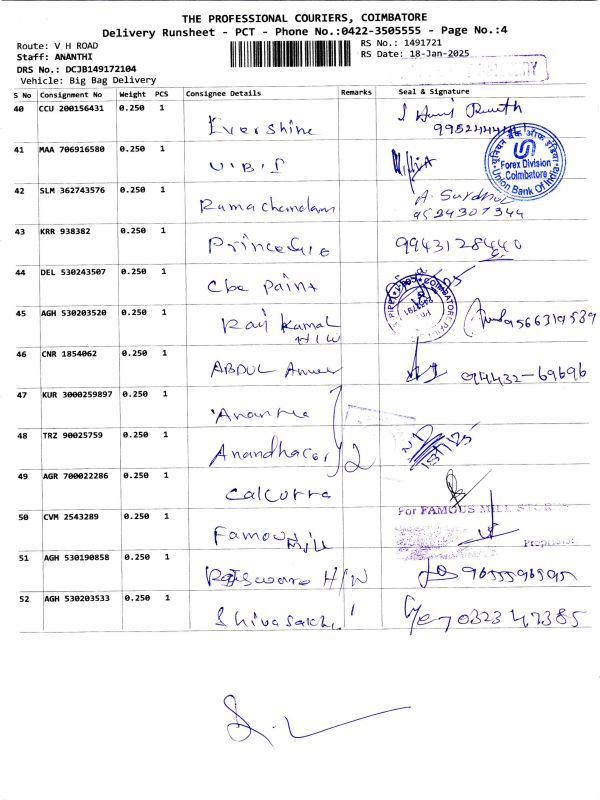 THE PROFESSIONAL COURIERS, COIMBATORE
Delivery Runsheet - PCT - Phone No.:0422-3505555 - Page No.:4
Route: V H ROAD
RS No.: 1491721
Staff: ANANTHI
RS Date: 18-Jan-2025
DRS No.: DCJB149172104
Vehicle: Big Bag Delivery
S No Consignment No Weight PCS Consignee Details Remarks Seal & Signature
40 CCU 200156431 0.250 1 Evershine
41 MAA 706916580 0.250 1 U.B.I
यूनियन बैंक ऑफ इंडिया
Forex Division
Coimbatore
Union Bank Of India
42 SLM 362743576 0.250 1 Ramachandran
9524307344
43 KRR 938382 0.250 1 9943128440
44 DEL 530243507 0.250 1 Cbe Paint
45 AGH 530203520 0.250 1 Raj Kamal
H/W
9566319589
46 CNR 1854062 0.250 1 ABDUL 94432-69696
47 KUR 3000259897 0.250 1
48 TRZ 90025759 0.250 1 2
49 AGR 700022286 0.250 1 Calcutta
50 CVM 2543289 0.250 1 Famous Mill
For FAMOUS MILL STORES
Proprietor
51 AGH 530190858 0.250 1 H/W
52 AGH 530203533 0.250 1 Shivasakthi